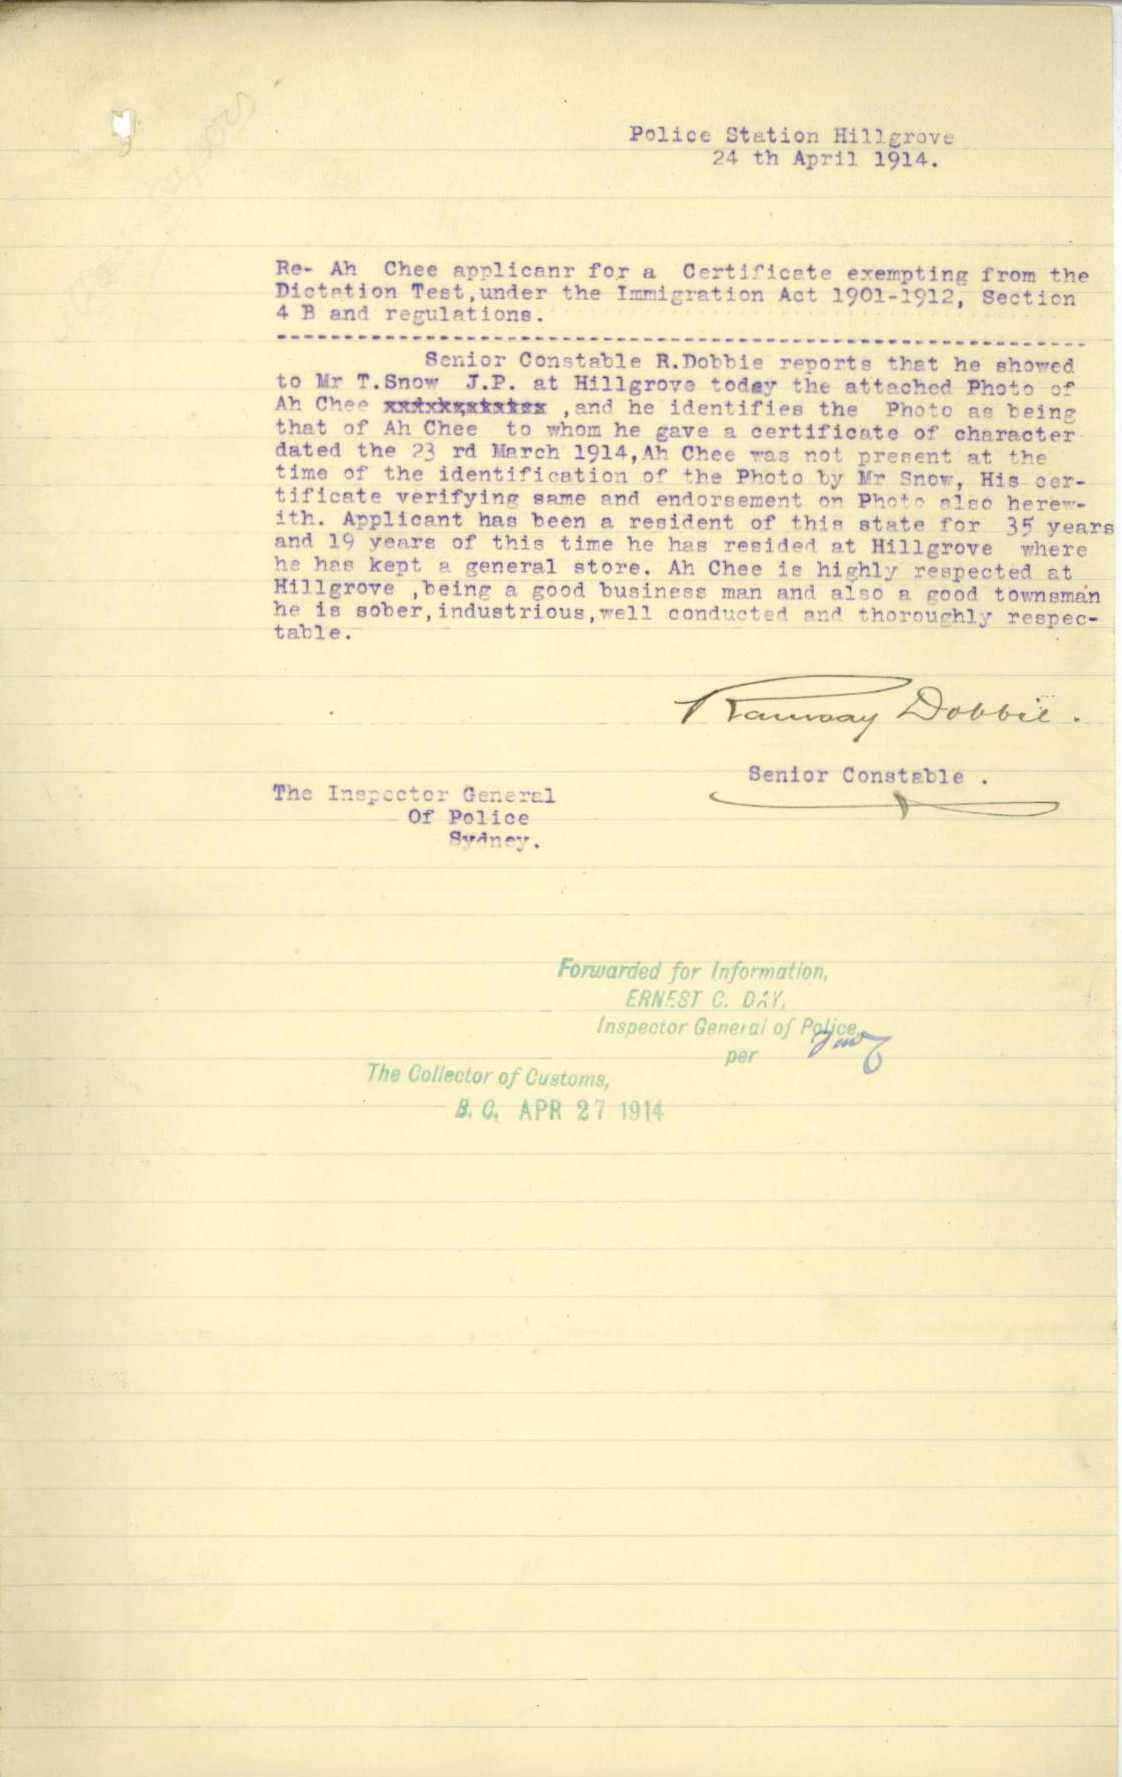 Police Station Hillgrove
24 th April 1914.
Re- Ah Chee applicanr for a Certificate exempting from the
Dictation Test,under the Immigration Act 1901-1912, Section
4 B and regulations.
Senior Constable R.Dobbie reports that he showed
to Mr T.Snow J.P. at Hillgrove today the attached Photo of
Ah Chee ,and he identifies the Photo as being
that of Ah Chee to whom he gave a certificate of character
dated the 23 rd March 1914,Ah Chee was not present at the
time of the identification of the Photo by Mr Snow, His cer-
tificate verifying same and endorsement on Photo also herew-
ith. Applicant has been a resident of this state for 35 years
and 19 years of this time he has resided at Hillgrove where
he has kept a general store. Ah Chee is highly respected at
Hillgrove ,being a good business man and also a good townsman
he is sober,industrious,well conducted and thoroughly respec-
table.
Ramsay Dobbie.
Senior Constable .
The Inspector General
Of Police
Sydney.
Forwarded for Information,
ERNEST C. DAY,
Inspector General of Police,
per
The Collector of Customs,
B. C. APR 27 1914